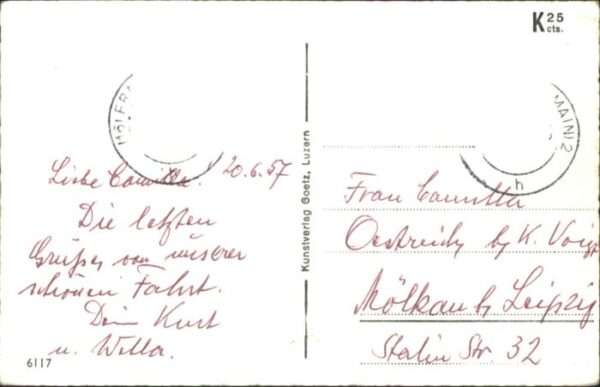 K 25 cts.
MAIN) 2
h
Liebe Camilla. 20.6.57
Die letzten
Grüsse von unserer
schönen Fahrt.
Dein Kurt
u. Willa.
6117
Kunstverlag Goetz, Luzern
Frau Camilla
Oestreich by K. Voigt
Mölkau b/ Leipzig
Stalin Str. 32